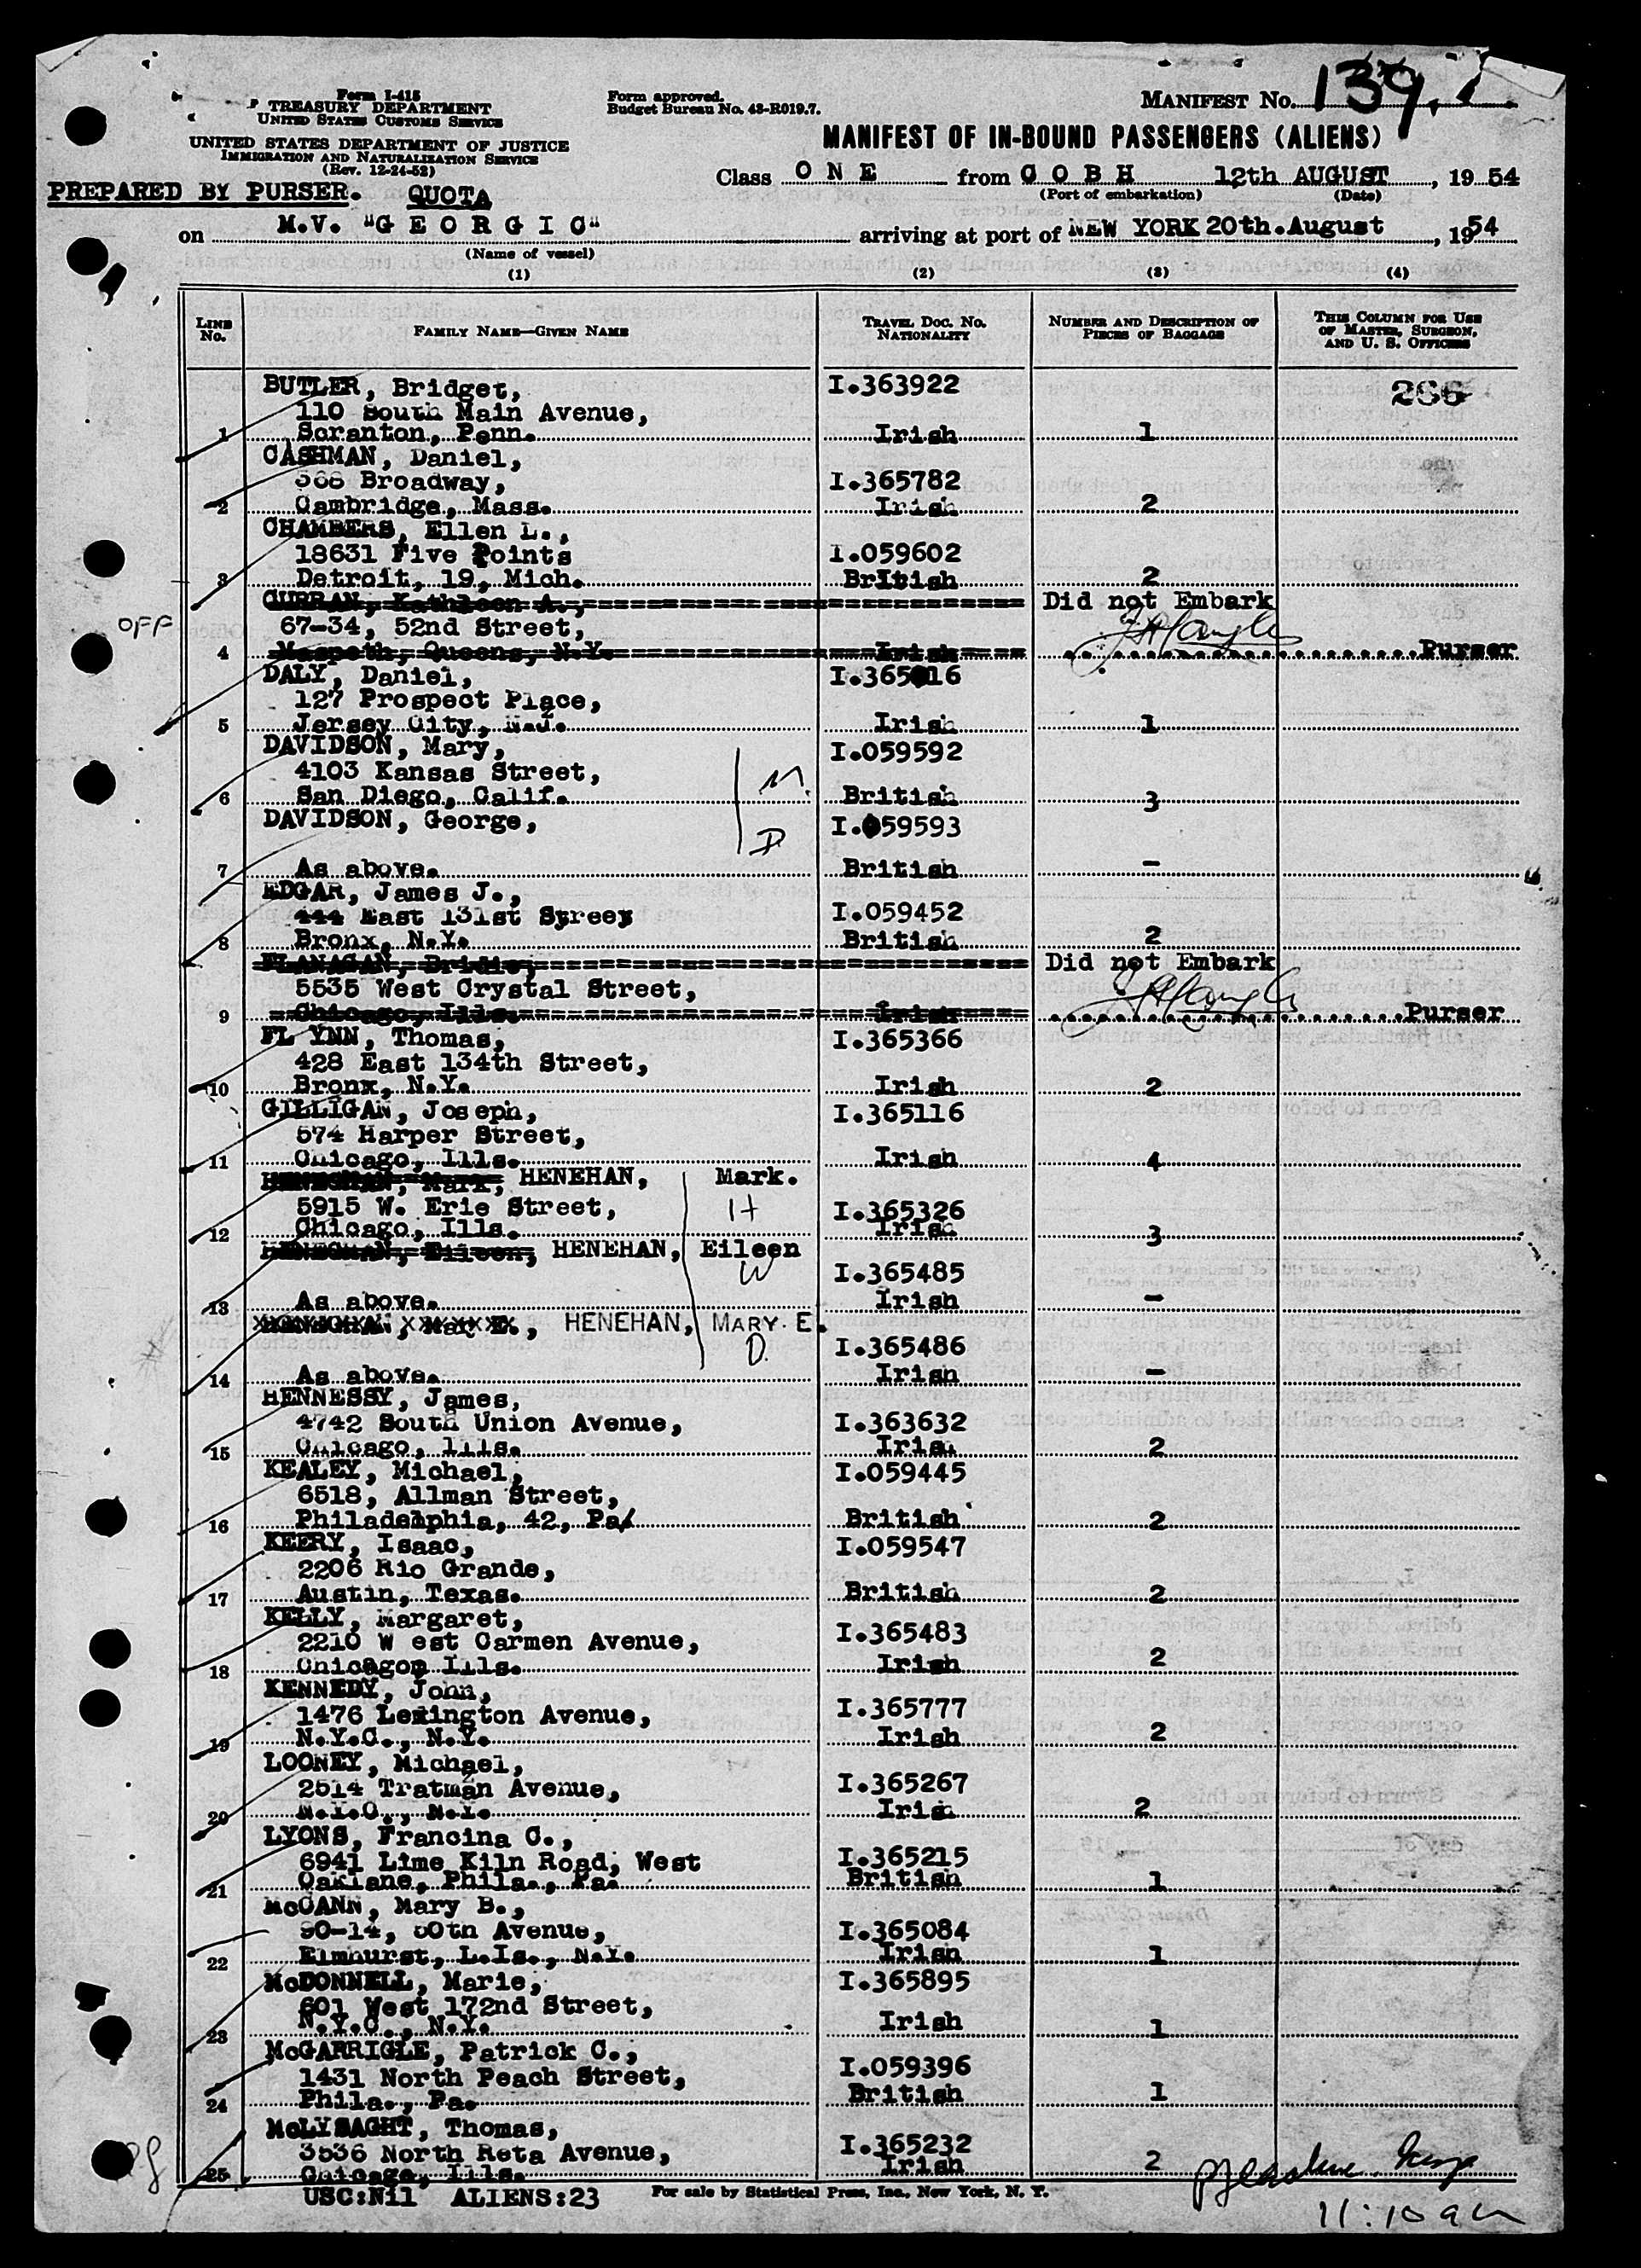 MANIFEST No. 139,
Form I-415
TREASURY DEPARTMENT
UNITED STATES CUSTOMS SERVICE
UNITED STATES DEPARTMENT OF JUSTICE
IMMIGRATION AND NATURALIZATION SERVICE
(Rev. 12-24-52)
Form approved.
Budget Bureau No. 43-R019.7.
MANIFEST OF IN-BOUND PASSENGERS (ALIENS)
PREPARED BY PURSER. QUOTA
Class O N E from C O B H 12th AUGUST, 19 54
(Port of embarkation) (Date)
on M.V. "G E O R G I C" arriving at port of NEW YORK 20th.August, 1954
(Name of vessel)
(1) (2) (3) (4)
LINE No. FAMILY NAME—GIVEN NAME TRAVEL DOC. No. NATIONALITY NUMBER AND DESCRIPTION OF PIECES OF BAGGAGE THIS COLUMN FOR USE OF MASTER, SURGEON, AND U. S. OFFICERS
BUTLER, Bridget, I.363922 266
110 South Main Avenue,
1 Scranton, Penn. Irish 1
CASHMAN, Daniel,
Broadway, I.365782
2 Cambridge, Mass. Irish 2
CHAMBERS, Ellen L.,
18631 Five Points I.059602
3 Detroit, 19, Mich. British 2
CURRAN, Kathleen A., Did not Embark
OFF 67-34, 52nd Street,
4 Maspeth, Queens, N.Y. Irish Purser
DALY, Daniel, I.365016
127 Prospect Place,
5 Jersey City, N.J. Irish 1
DAVIDSON, Mary, I.059592
4103 Kansas Street, M.
6 San Diego, Calif. British 3
DAVIDSON, George, I.059593
D
7 As above. British -
EDGAR, James J.,
444 East 131st Syreey I.059452
8 Bronx, N.Y. British 2
FLANAGAN, Bridie, Did not Embark
5535 West Crystal Street,
9 Chicago, Ills. Irish Purser
FL YNN, Thomas, I.365366
428 East 134th Street,
10 Bronx, N.Y. Irish 2
GILLIGAN, Joseph, I.365116
574 Harper Street,
11 Chicago, Ills. Irish 4
HENEGHAN, Mark, HENEHAN, Mark.
5915 W. Erie Street, H I.365326
12 Chicago, Ills. Irish 3
HENEGHAN, Eileen, HENEHAN, Eileen
W I.365485
13 As above. Irish -
Mary E., HENEHAN, MARY. E.
D. I.365486
14 As above. Irish -
HENNESSY, James,
4742 South Union Avenue, I.363632
15 Chicago, Ills. Irish 2
KEALEY, Michael, I.059445
6518, Allman Street,
16 Philadelphia, 42, Pa/ British 2
KEERY, Isaac, I.059547
2206 Rio Grande,
17 Austin, Texas. British 2
KELLY, Margaret,
2210 W est Carmen Avenue, I.365483
18 Chicagop Ills. Irish 2
KENNEDY, John,
1476 Lexington Avenue, I.365777
19 N.Y.C., N.Y. Irish 2
LOONEY, Michael,
2514 Tratman Avenue, I.365267
20 N.Y.C., N.Y. Irish 2
LYONS, Francina C.,
6941 Lime Kiln Road, West I.365215
21 Oaklane, Phila., Pa. British 1
McCANN, Mary B.,
90-14, 50th Avenue, I.365084
22 Elmhurst, L.Is., N.Y. Irish 1
McDONNELL, Marie, I.365895
601 West 172nd Street,
23 N.Y.C., N.Y. Irish 1
McGARRIGLE, Patrick C.,
1431 North Peach Street, I.059396
24 Phila., Pa. British 1
McLYSAGHT, Thomas,
3536 North Reta Avenue, I.365232
25 Chicago, Ills. Irish 2
USC:Nil ALIENS:23 For sale by Statistical Press, Inc., New York, N. Y.
11:10 am